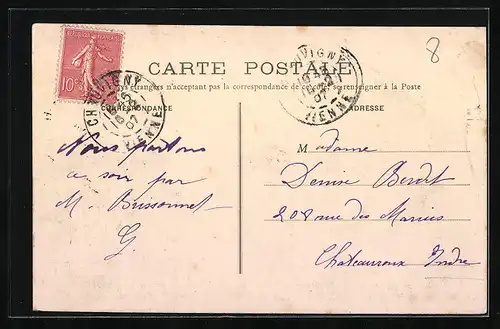 8
CARTE POSTALE
pays étrangers n'acceptent pas la correspondance de ce côté se renseigner à la Poste
CORRESPONDANCE
ADRESSE
10c
CHAUVIGNY
07
VIENNE
Nous partons
ce soir par
M. Brissonnet
G.
Madame
Denise
208 rue des
Chateauroux Indre